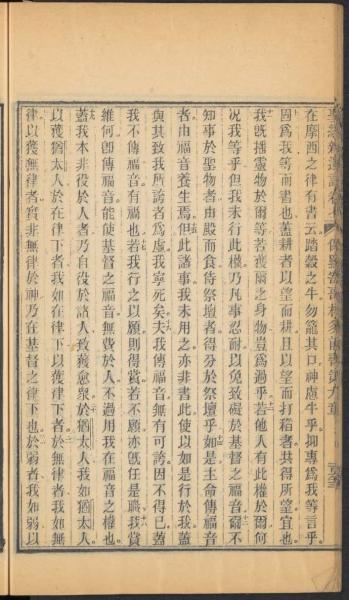 在摩西之律有書云踏穀之牛勿籠其口神慮牛乎抑專爲我等言乎
因爲我等而書也蓋耕者以望而耕且以望而打稻者共得所望宜也
我旣播靈物於爾等若穫爾之身物豈爲過乎若他人有此權於爾何
况我等乎但我未行此權乃凡事忍耐以免致礙於基督之福音爾不
知事於聖物者由殿而食侍祭壇者得分於祭壇乎如是主命傳福音
者由福音養生焉但此諸事我未用之亦非書此使以如是行於我蓋
與其致我所誇者爲虛我寧死矣夫我傳福音無有可誇因不得已蓋
我不傳福音有禍也若我行之以願則得賞若不願亦旣任是職我賞
維何卽傳福音能使基督之福音無費於人不過用我在福音之權也
蓋我本非役於人者乃自役於諸人致獲愈衆於猶太人我如猶太人
以獲猶太人於在律下者我如在律下以獲律下者於無律者我如無
律以獲無律者實非無律於神乃在基督之律下也於弱者我如弱以